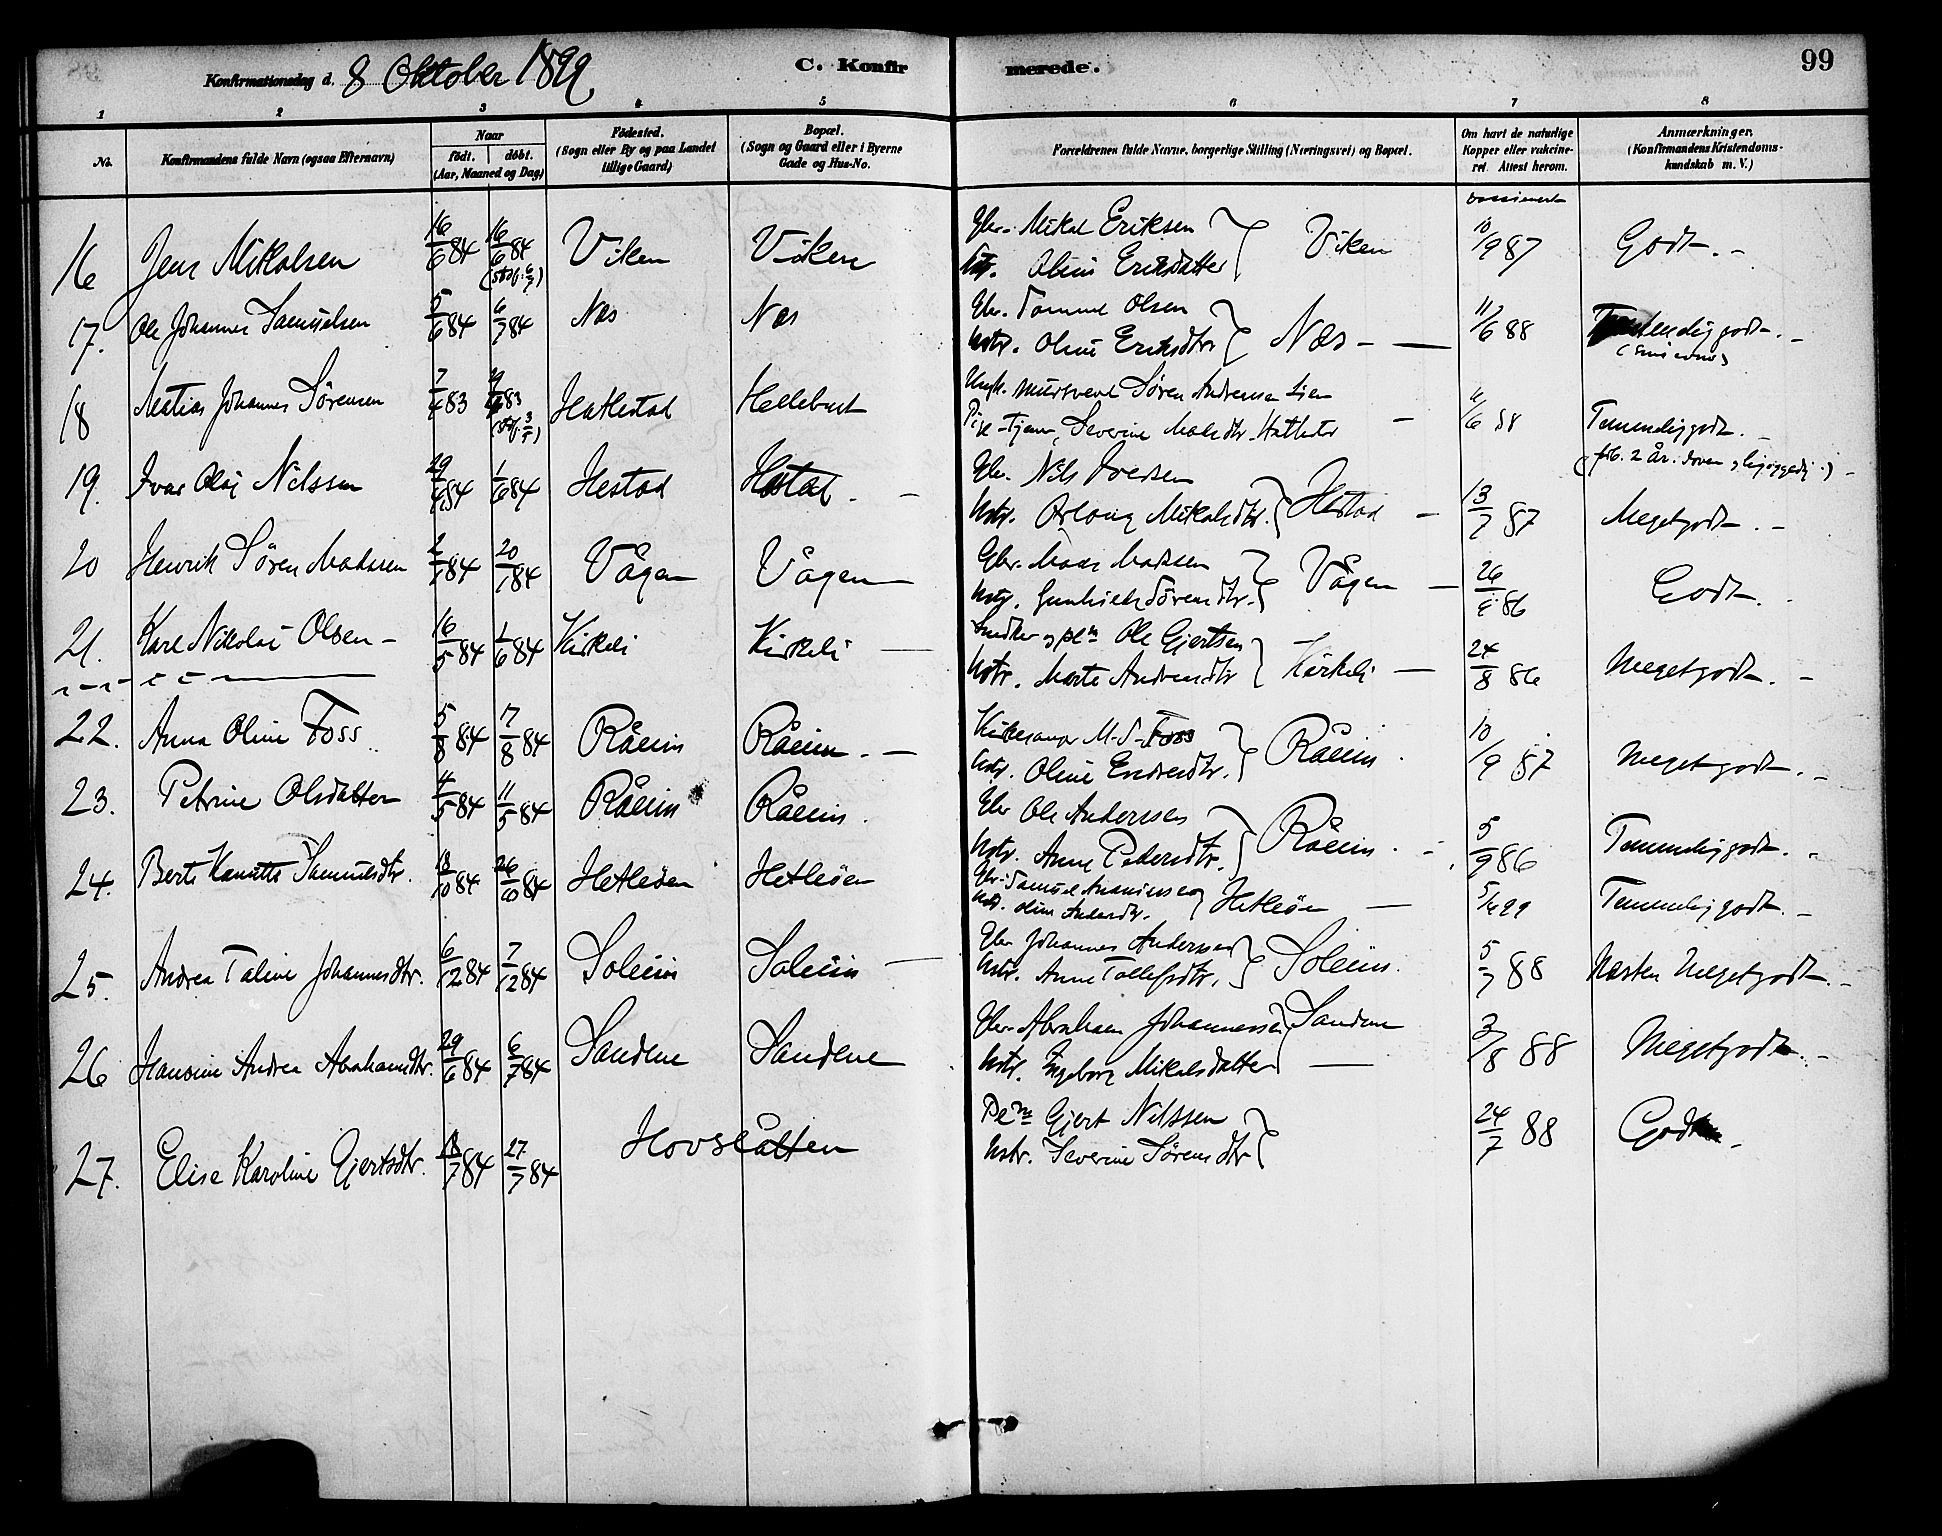 99
Konfirmationsdag d. 8 Oktober 1899
C. Konfirmerede.
1 2 3 4 5 6 7 8
No.
Konfirmandens fulde Navn (ogsaa Efternavn)
Naar
födt. döbt.
(Aar, Maaned og Dag)
Födested.
(Sogn eller By og paa Landet
tillige Gaard)
Bopæl.
(Sogn og Gaard eller i Byerne
Gade og Hus-No.
Forældrenes fulde Navne, borgerlige Stilling (Næringsvei) og Bopæl.
Om havt de naturlige
Kopper eller vakcine-
ret. Attest herom.
Anmærkninger.
(Konfirmandens Kristendoms-
kundskab m. V.)
16 Jens Mikalsen 16/6 84 16/6 84 Viken Viken Gbr. Mikal Eriksen Viken 10/9 87 Godt. -
Hstr. Oline Eriksdatter
17. Ole Johannes Samuelsen 5/6 84 6/7 84 Næs Næs Gbr. Samuel Olsen Næs - 11/6 88 Temmelig godt. -
Hstr. Oline Eriksdtr
18 Matias Johannes Sörensen 7/4 83 Hatlestad Hellebust Ungk. Sören Andersen Lien 11/6 88 Temmelig godt. -
Pige - Severine
(forb. 2 år. doven
19. Ivar Olai Nilssen 29/4 84 1/6 84 Hestad Hestad. - Gbr. Nils Iversen Hestad - 13/7 87 Meget godt. -
Hstr. Mikalsdtr.
20 Henrik Sören Madssen 2/7 84 20/7 84 Vågen Vågen Gbr. Mads Madssen Vågen - 26/8 86 Godt.
Hstr. Gunhild Sörensdtr.
21. Karl Nikolai Olsen - 16/5 84 1/6 84 Kirkeli Kirkeli Snedker og plm Ole Gjertsen Kirkeli - 24/8 86 Meget godt. -
Hstr. Marte Andersdtr
22. Anna Oline Foss 5/8 84 17/8 84 Råeim Råeim. - Kirkesanger M. S. Foss Råeim 10/9 87 Meget godt. -
Hstr. Oline Endresdtr.
23. Petrine Olsdatter 4/5 84 11/5 84 Råeim Råeim. Gbr Ole Anderssen Råeim. - 5/9 86 Temmelig godt. -
Hstr. Anne Pedersdtr.
24. Berte Kanutte Samuelsdtr. 18/10 84 26/10 84 Hetleöen Hetleöen Gbr. Samuel Hetleöen 5/4 99 Temmelig godt. -
Hstr. Oline Andersdtr.
25. Andrea Taline Johannesdtr. 6/12 84 7/12 84 Soleim Soleim Gbr Johannes Anderssen Soleim. 5/7 88 Næsten Meget godt. -
Hstr. Anne Tollefsdtr.
26 Hansine Andrea Abrahamdtr. 29/6 84 6/7 84 Sandene Sandene Gbr. Abraham Johannessen Sandene 3/8 88 Meget godt. -
Hstr. Ingeborg Mikalsdatter
27. Elise Karoline Gjertsdtr. 18/7 84 27/7 84 Hovslåtten Plm Gjert Nilssen 24/7 88 Godt -
Hstr. Severine Sörensdtr